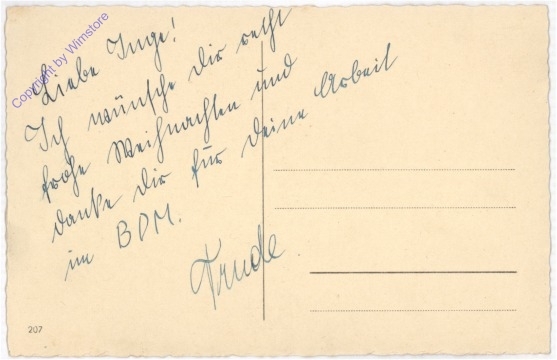 Copyright by Wimstore
Liebe Inge!
Ich wünsche dir recht
frohe Weihnachten und
danke dir für deine Arbeit
im BDM.
Trude
207